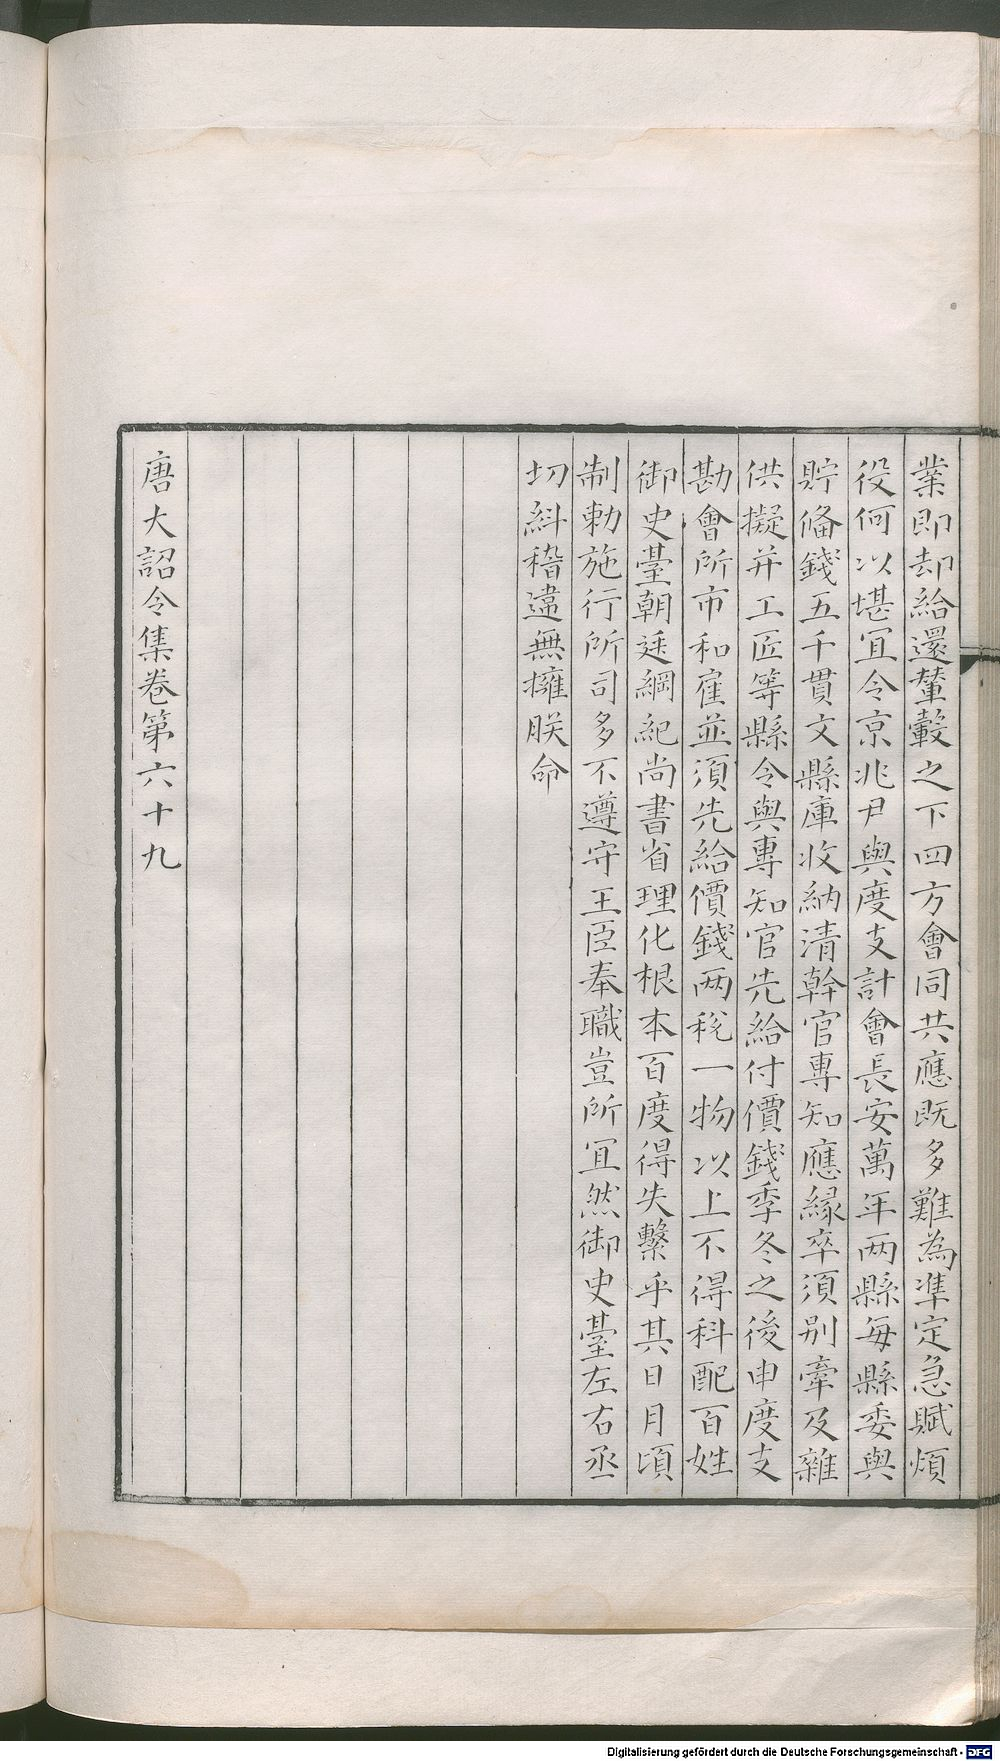 業即却給還輦轂之下四方會同共應既多難為準定急賦煩
役何以堪宜令京兆尹與度支計會長安萬年兩縣每縣委與
貯俻錢五千貫文縣庫收納清幹官專知應緣卒須別牽及雜
供擬并工匠等縣令與專知官先給付價錢季冬之後申度支
勘會所市和雇並須先給價錢两稅一物以上不得科配百姓
御史臺朝廷綱紀尚書省理化根本百度得失繫乎其日月頃
制勅施行所司多不遵守王臣奉職豈所宜然御史臺左右丞
切糾稽違無擁朕命
唐大詔令集卷第六十九
Digitalisierung gefördert durch die Deutsche Forschungsgemeinschaft - DFG